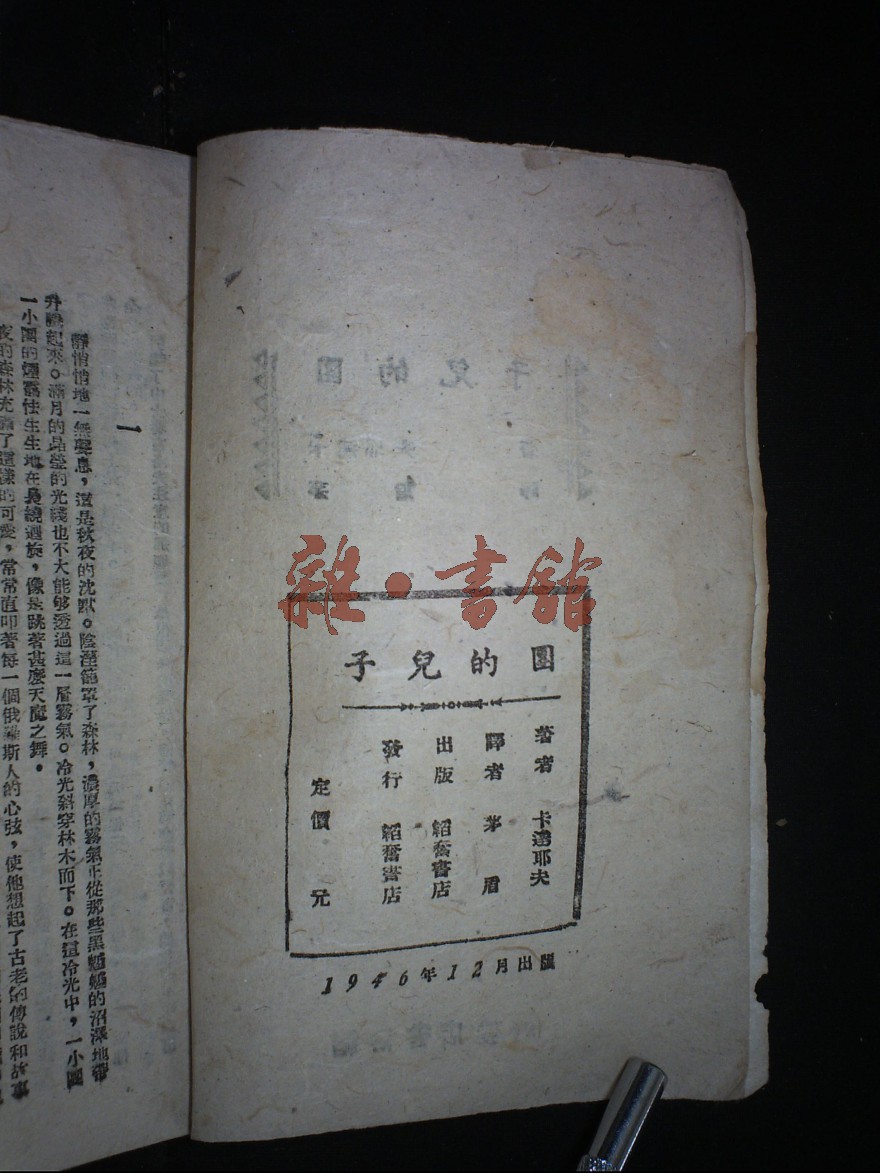 雜·書館
團的兒子
著者 卡達耶夫
譯者 茅盾
出版 韜奮書店
發行 韜奮書店
定價 元
1946年12月出版
一
靜悄悄地一無聲息，這是秋夜的沈默。陰溼籠罩了森林，濃厚的霧氣正從那些黑魆魆的沼澤地帶
升騰起來。滿月的晶瑩的光綫也不大能够透過這一層霧氣。冷光斜穿林木而下。在這冷光中，一小團
一小團的煙霧怯生生地在裊繞迴旋，像是跳著甚麼天魔之舞。
夜的森林充滿了這樣的可愛，常常直叩著每一個俄羅斯人的心弦，使他想起了古老的傳說和故事